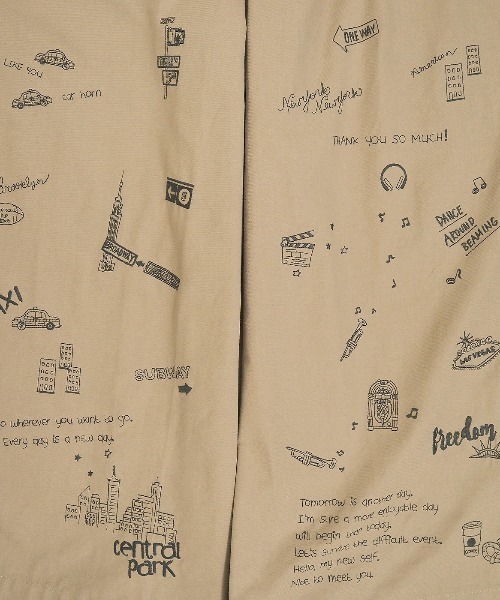 LIKE YOU
car horn
Brooklyn
TAXI
BROADWAY
SUBWAY
o wherever you want to go.
Every day is a new day.
central
PARK
ONE WAY
American
Newyork
Newyork
THANK YOU SO MUCH!
DANCE
AROUND
BEAMING
LAS VEGAS
freedom
Tomorrow is another day.
I'm sure a more enjoyable day
will begin than today.
Let's the difficult event.
Hello, my new self.
Nice to meet you.